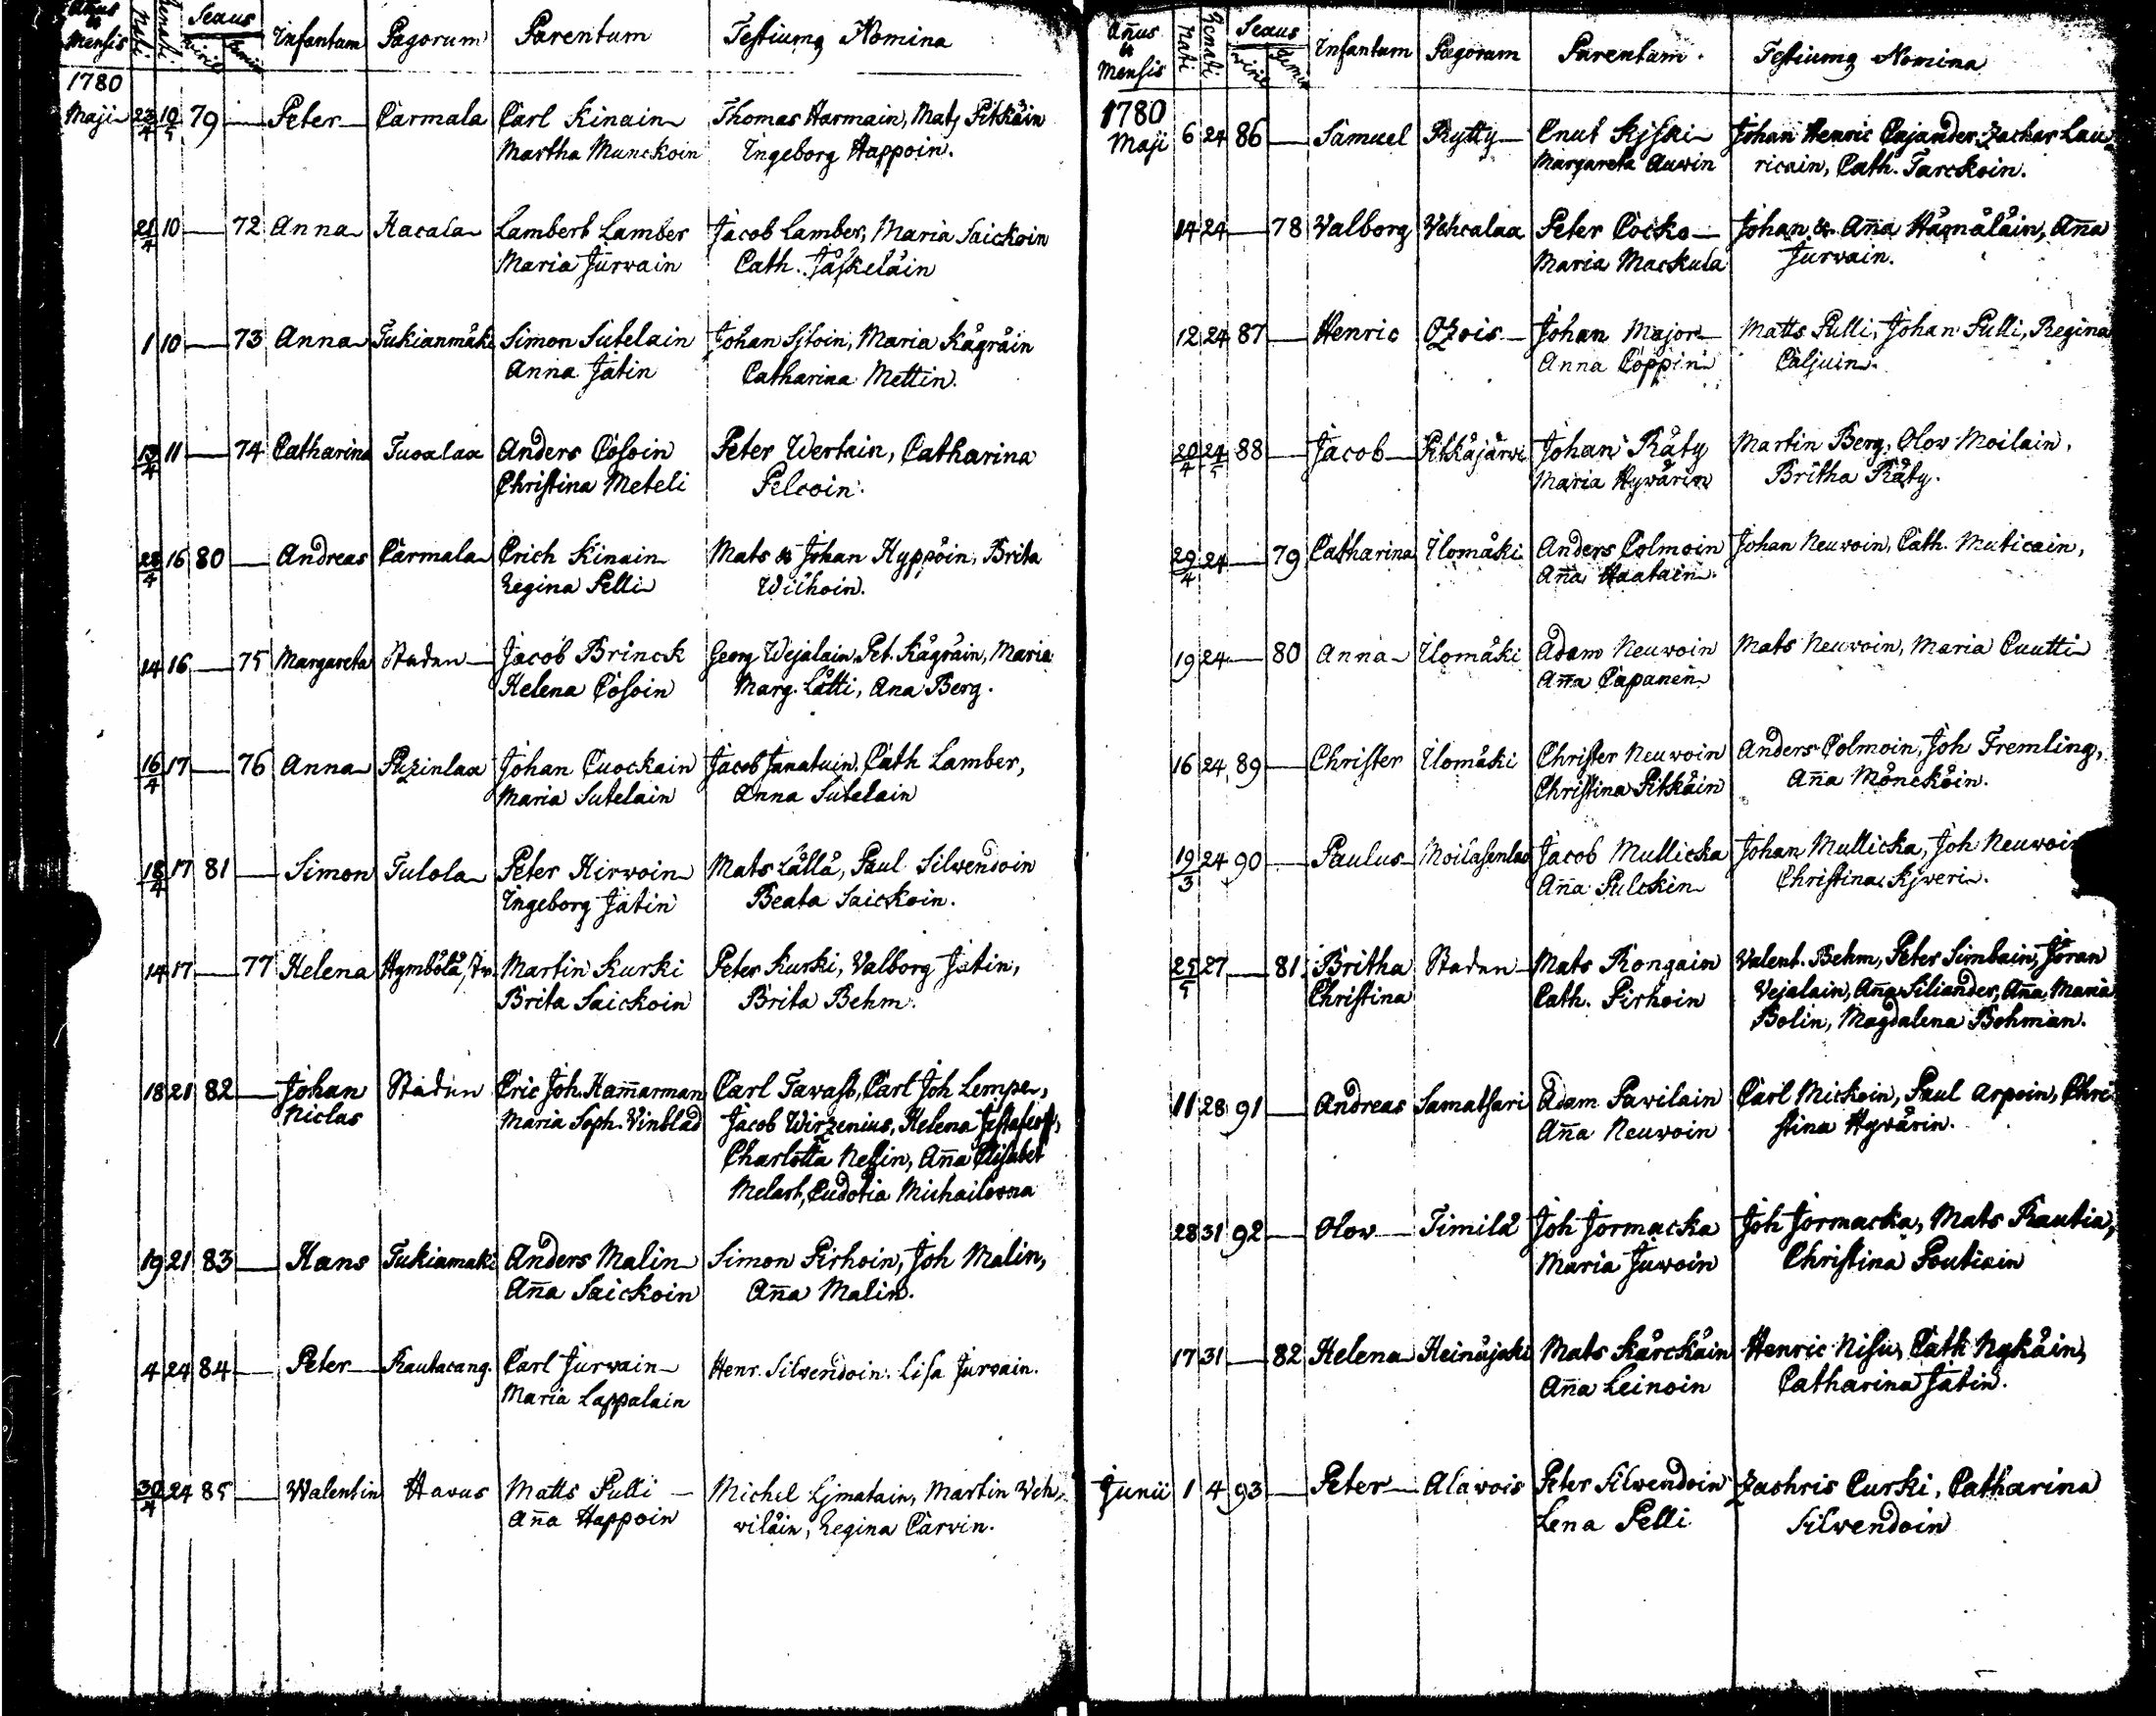 Añus & Mensis Nati Renati Sexus Infantum Pagorum Parentum Testiumq Nomina
Virile
1780
Maji 23/4 10/5 79 — Peter Carmala Carl Kinain Thomas Harmain, Mats Pitkäin
Martha Munckoin Ingeborg Happoin.
21/4 10 — 72 Anna Kacala Lambert Lamber Jacob Lamber, Maria Saickoin
Maria Jurwain Cath. Jäskeläin
1 10 — 73 Anna Tukianmäki Simon Sutelain Johan Siloin, Maria Kägräin
Anna Jätin Catharina Mettin.
13/4 11 — 74 Catharina Tuoxlax Anders Cosoin Peter Wertain, Catharina
Christina Meteli Pelcoin.
28/4 16 80 — Andreas Carmala Erich Kinain Mats & Johan Hyppöin, Brita
Regina Pelli Wilhoin.
14 16 — 75 Margareta Staden Jacob Brinck Georg Wejalain, Pet. Kägräin, Maria
Helena Cosoin Marg. Lätti, Ana Berg.
16/4 17 — 76 Anna Puzinlax Johan Cuockain Jacob Janatuin, Cath Lamber,
Maria Sutelain Anna Sutelain
18/4 17 81 — Simon Tulola Peter Hirwoin Mats Lällä, Paul Silwendoin
Ingeborg Jätin Beata Saickoin.
14 17 — 77 Helena Hymbölä Martin Kurki Peter Kurki, Valborg Jätin,
Brita Saickoin Brita Behm.
18 21 82 — Johan Staden Eric Joh. Ham̃arman Carl Tawast, Carl Joh Lempe,
Niclas Maria Soph. Vinblad Jacob Wirzenius, Helena
Charlotta Neßin, Aña Elisabet
Melart, Eudotia Michailovna
19 21 83 — Hans Tukiamaki Anders Malin Simon Pirhoin, Joh Malin,
Aña Saickoin Aña Malin.
4 24 84 — Peter Rautacang. Carl Jurwain Henr. Silvendoin. Lisa Jurvain.
Maria Lappalain
30/4 24 85 — Walentin Havus Matts Pulli Michel Limatain, Martin Veh,
Aña Happoin viläin, Regina Carvin.
Añus & Mensis Nati Renati Sexus Infantum Pagorum Parentum. Testiumq Nomina
Virile
1780
Maji 6 24 86 — Samuel Rytty Cnut Kiski Johan Henric Cajander, Zachar Lau
Margareta Auwin ricain, Cath. Tarckoin.
14 24 — 78 Valborg Vehcalax Peter Cocko Johan & Aña Hämäläin, Aña
Maria Mackula Jurvain.
12 24 87 — Henric Ozois Johan Major Matts Pulli, Johan Pulli, Regina
Anna Coppin Caljuin.
20/4 24/5 88 — Jacob Pitkäjärvi Johan Räty Martin Berg, Olov Moilain,
Maria Hywärin Britha Räty.
29/4 24 — 79 Catharina Ilomäki Anders Colmoin Johan Neuvoin, Cath. Muticain,
Aña Haatain
19 24 — 80 Anna Ilomäki Adam Neuwoin Mats Neuvoin, Maria Cuutti
Aña Capanen
16 24 89 — Christer Ilomäki Christer Neuwoin Anders Colmoin, Joh Fremling,
Christina Pitkäin Aña Möncköin.
19/3 24 90 — Paulus Moilasenlax Jacob Mullicka Johan Mullicka, Joh Neuwoi
Aña Pulckin Christina Kiweri.
25/5 27 — 81 Britha Staden Mats Rongain Valent. Behm, Peter Simbain, Jöran
Christina Cath. Pirhoin Vejalain, Aña Siliander, Aña Maria
Bolin, Magdalena Bohman.
11 28 91 — Andreas Samatsari Adam Pawilain Carl Mickoin, Paul Arpoin, Chri
Aña Neuwoin stina Hyvärin.
28 31 92 — Olov Timilä Joh Jormacka Joh Jormacka, Mats Rautia,
Maria Juwoin Christina Poutiain
17 31 — 82 Helena Heinäjoki Mats Kärckäin Henric Nisu, Cath Nykäin,
Aña Leinoin Catharina Jätin.
Junii 1 4 93 — Peter Alavois Peter Silwendoin Zachris Curki, Catharina
Lena Pelli Silvendoin